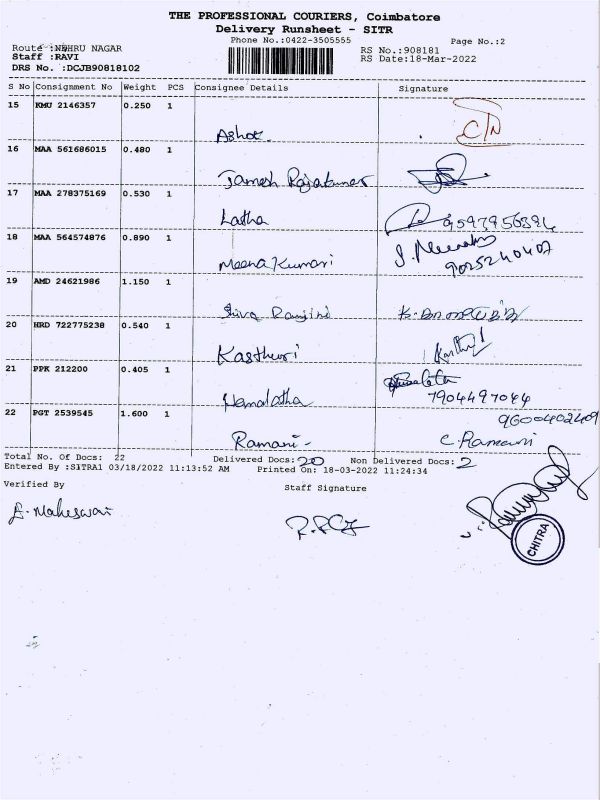 THE PROFESSIONAL COURIERS, Coimbatore
Delivery Runsheet - SITR
Phone No.:0422-3505555
Page No.:2
Route :NEHRU NAGAR
RS No.:908181
Staff :RAVI
RS Date:18-Mar-2022
DRS No. :DCJB90818102
S No Consignment No Weight PCS Consignee Details Signature
15 KMU 2146357 0.250 1
Ashok
16 MAA 561686015 0.480 1
James Rajakumar
17 MAA 278375169 0.530 1
Latha
18 MAA 564574876 0.890 1
Meena Kumari
9025240407
19 AMD 24621986 1.150 1
Siva Ranjini
20 HRD 722775238 0.540 1
Kasthuri
21 PPK 212200 0.405 1
Hemalatha
7904497044
22 PGT 2539545 1.600 1
9600402409
Ramani - C. Ramani
Total No. Of Docs: 22 Delivered Docs: 20 Non Delivered Docs: 2
Entered By :SITRA1 03/18/2022 11:13:52 AM Printed On: 18-03-2022 11:24:34
Verified By Staff Signature
Maheswari
CHITRA